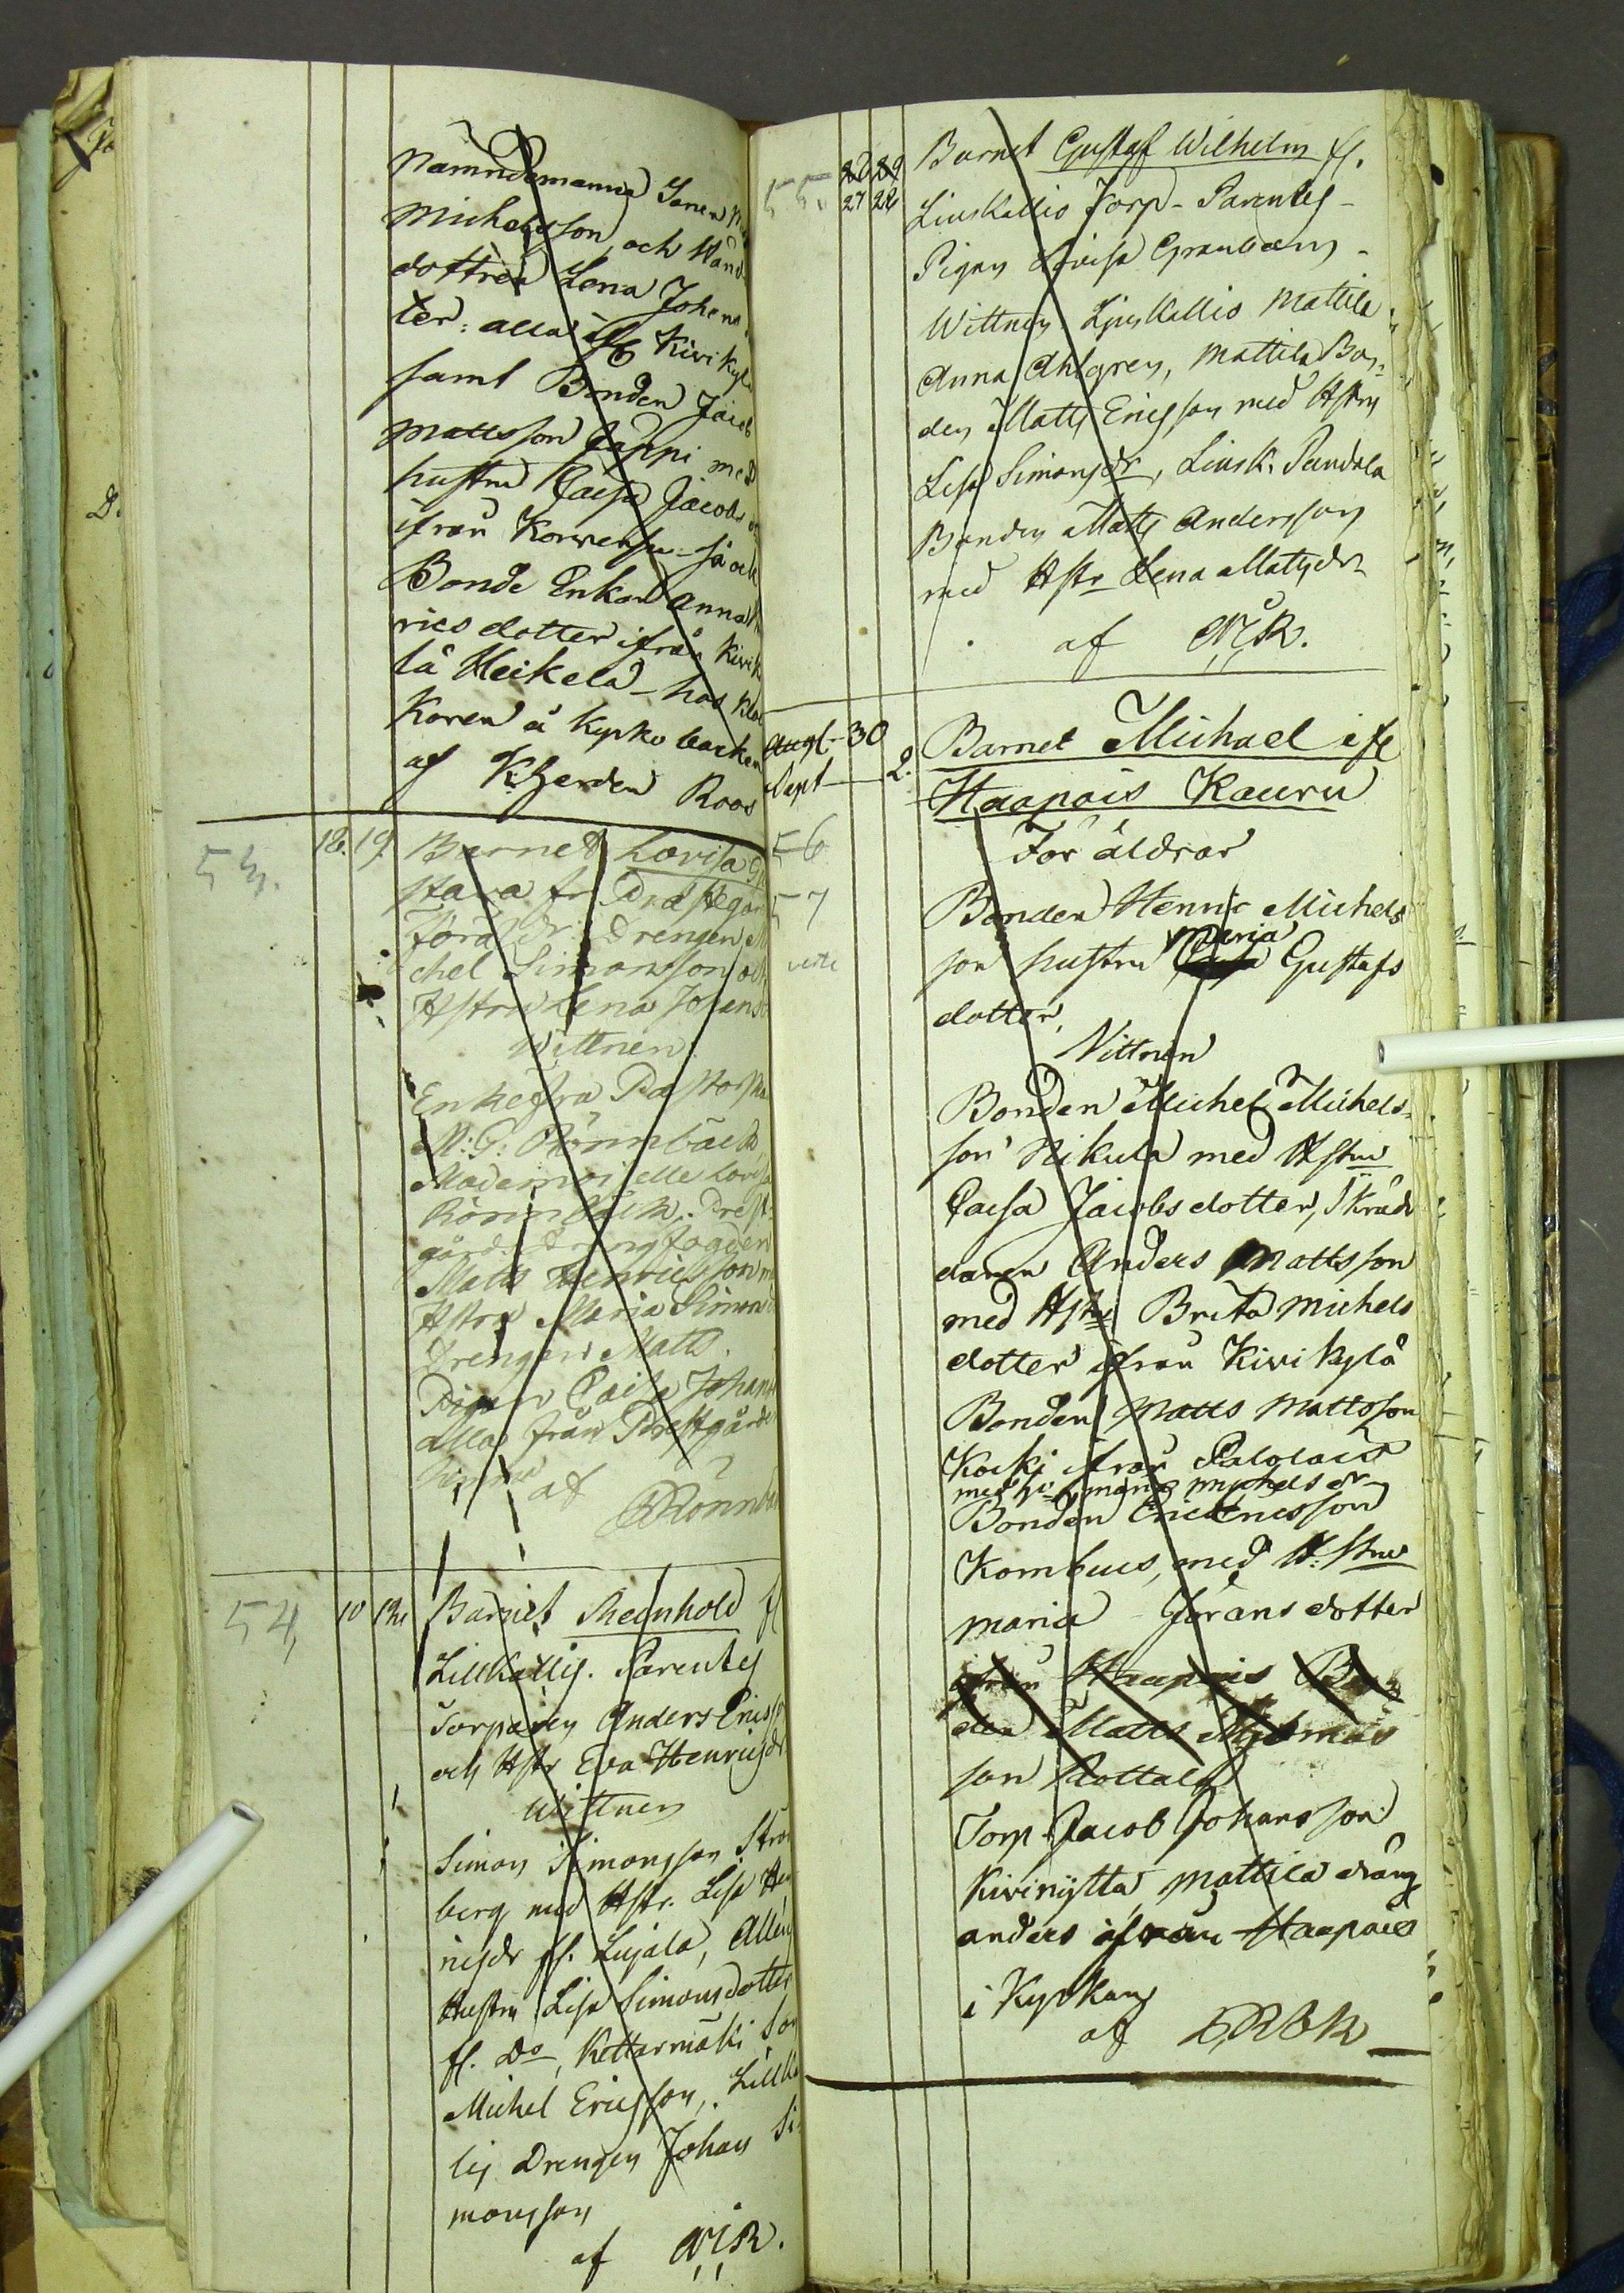 Nämndemannen Sonen
Michelsson och Wänd-
dottren Lena Johens
ter: alla ifr Kivikylä
samt Bonden Jacob
Mattsson Jappi med
hustru Caisa Jacobs
ifrån Korvensu så och
Bonde Enkan Anna
rics dotter ifrån Kivik
lä Heikelä hos Kloc
Karen å Kyrko backen
af Kherden Roos
53. 18. 19. Barnet Lovisa Gu
stava fr Prästegår
Föräldr: Drengen Mi
chel Simonsson och
Hstru Lena Johans
Wittnen:
Enkefru Pastorska
M: G: Rönnbäck
Mademoiselle Lovisa
Rönnbäck. Prest-
gård. Drengfogden
Matts Henricsson m
Hstru Maria Simons
Drengen Matts.
Pigan Caisa Johans
alla från Prestgården
af Rönnbä
54, 10 Barnet Reinhold fl
Lillkallis. Parentes
Torparen Anders Ericss
och Hstr Eva Henricsdr
Wittnen
Simon Simonsson Strö
berg med Hstr. Lisa Hen
ricsdr fl. Lujala,
Hustru Lisa Simonsdotter
fl. Do, Kettarmäki Son
Michel Ericsson, Lillka
lis Drengen Johan Si-
monsson
af NIR.
55. 27 28 Barnet Gustaf Wilhelm fl.
Liuskallio Torp - Parentes -
Pigan Lovisa Granberg -
Wittnen Liuskallio Mattila
Anna Ahlgren, Mattila Bon-
den Matts Ericsson med Hstru
Lisa Simonsdr, Liusk. Pendala
Bonden Matts Andersson
med Hstr Lena Mattsdr
af NIR.
Augt- 30 Barnet Michael ifr
Sept 2. Haapois Kauru
56 Föräldrar
57 Bonden Henric Michels
Maria
son hustru Gustafs
dotter,
Vittnen
Bonden Michel Michels-
son Nikula med Hstru
Caisa Jacobsdotter, Skräd
daren Anders Mattsson
med Hstru Brita Michels
dotter ifrån Kivikylä
Bonden Matts Mattsson
Koski ifrån Palolais
med hu maria Michels dr
Bonden Eric Ericsson
Kornbus, med H: stru
Maria Jörans dotter
ifrån Haapois Bon
den Matts
son Rottala
Torp Jacob Johansson
Kivinytta, Mattila dräng
anders ifrån Haapois
i Kyrkan
af